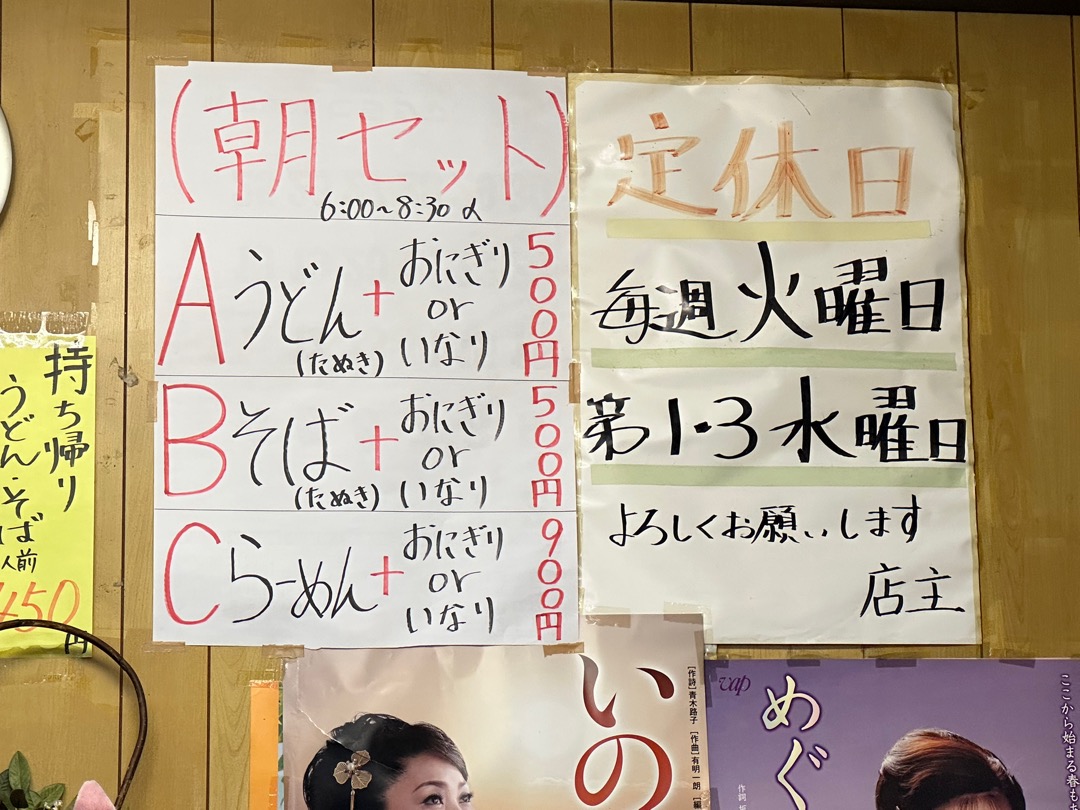 (朝セット)
6:00~8:30
A うどん + おにぎり or いなり 500円
(たぬき)
B そば + おにぎり or いなり 500円
(たぬき)
C らーめん + おにぎり or いなり 900円
定休日
毎週火曜日
第1・3水曜日
よろしくお願いします
店主
持ち帰り
うどん・そば
人前
450円
いの
[作詩]青木路子 [作曲]有明一朗
vap
めぐ
作詞
ここから始まる春も